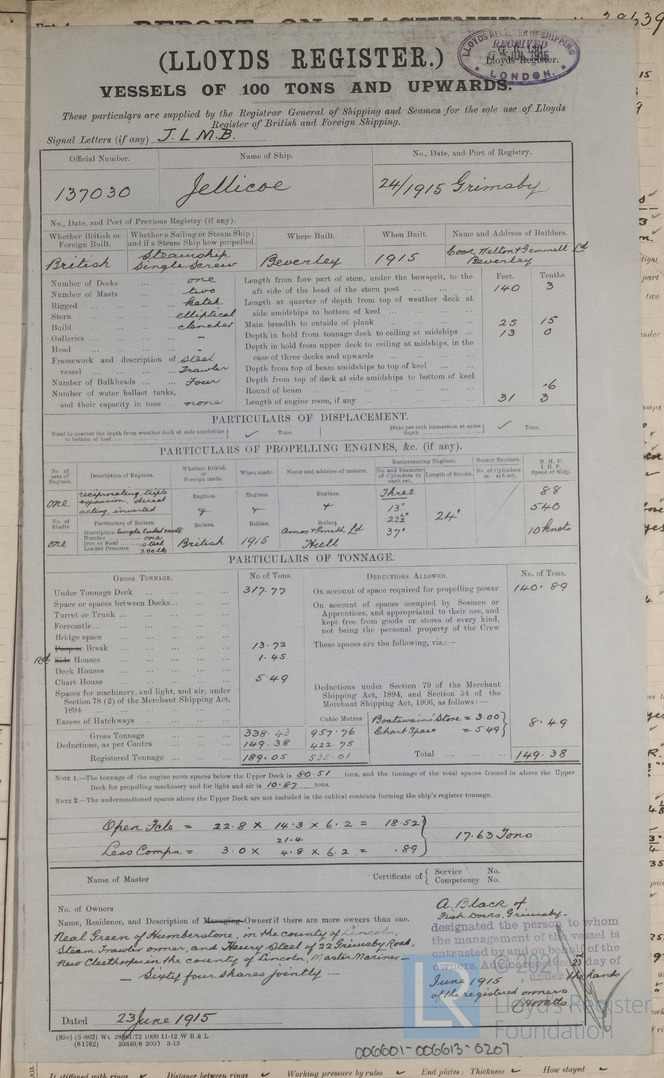 REPORT ON MACHINERY
(LLOYDS REGISTER.)
LLOYDS REGISTER OF SHIPPING
RECEIVED
Lloyds Register.
LONDON.
VESSELS OF 100 TONS AND UPWARDS.
These particulars are supplied by the Registrar General of Shipping and Seamen for the sole use of Lloyds
Register of British and Foreign Shipping.
Signal Letters (if any) J.L.M.B.
Official Number. Name of Ship. No., Date, and Port of Registry.
137030 Jellicoe 24/1915 Grimsby
No., Date, and Port of Previous Registry (if any).
Whether British or Foreign Built. Whether a Sailing or Steam Ship; and if a Steam Ship how propelled. Where Built. When Built. Name and Address of Builders.
British Steamship Single Screw Beverley 1915 Cook Welton & Gemmell Ld Beverley
Feet. Tenths
Number of Decks one
Number of Masts two
Rigged Ketch
Stern elliptical
Build clencher
Galleries -
Head -
Framework and description of vessel Steel Trawler
Number of Bulkheads Four
Number of water ballast tanks, and their capacity in tons none
Length from fore part of stem, under the bowsprit, to the aft side of the head of the stern post 140 3
Length at quarter of depth from top of weather deck at side amidships to bottom of keel
Main breadth to outside of plank 25 15
Depth in hold from tonnage deck to ceiling at midships 13 0
Depth in hold from upper deck to ceiling at midships, in the case of three decks and upwards
Depth from top of beam amidships to top of keel
Depth from top of deck at side amidships to bottom of keel
Round of beam .6
Length of engine room, if any 31 3
PARTICULARS OF DISPLACEMENT.
Total to quarter the depth from weather deck at side amidships to bottom of keel ✓ Tons. Ditto per inch immersion at same depth ✓ Tons.
PARTICULARS OF PROPELLING ENGINES, &c. (if any).
No. of sets of Engines. Description of Engines. Whether British or Foreign made. When made. Name and address of makers. Reciprocating Engines. No. and Diameter of Cylinders in each set. Length of Stroke. Rotary Engines. No. of Cylinders in each set. N.H.P. I.H.P. Speed of Ship.
one reciprocating, triple expansion, direct acting, inverted Engines. Engines. Engines. Three 13" 22½" 37" 24" 88 540 10 knots
No. of Shafts Particulars of Boilers. Boilers. Boilers. Boilers.
one Description Single Ended mult
Number one
Iron or Steel steel
Loaded Pressure 200 lb
British 1915 Amos & Smith Ld Hull
PARTICULARS OF TONNAGE.
GROSS TONNAGE. No of Tons. DEDUCTIONS ALLOWED. No. of Tons.
Under Tonnage Deck 317.77
Space or spaces between Decks
Turret or Trunk
Forecastle
Bridge space
Poop or Break 13.72
Side Houses 1.45
Deck Houses
Chart House 5.49
Spaces for machinery, and light, and air, under Section 78 (2) of the Merchant Shipping Act, 1894
Excess of Hatchways
Cubic Metres
Gross Tonnage 338.43 957.76
Deductions, as per Contra 149.38 422.75
Registered Tonnage 189.05 535.01
On account of space required for propelling power 140.89
On account of spaces occupied by Seamen or Apprentices, and appropriated to their use, and kept free from goods or stores of every kind, not being the personal property of the Crew
These spaces are the following, viz.:—
Deductions under Section 79 of the Merchant Shipping Act, 1894, and Section 54 of the Merchant Shipping Act, 1906, as follows:—
Boatswain's Store = 3.00
Chart Space = 5.49
8.49
Total 149.38
NOTE 1.—The tonnage of the engine room spaces below the Upper Deck is 50.51 tons, and the tonnage of the total spaces framed in above the Upper
Deck for propelling machinery and for light and air is 10.87 tons.
NOTE 2.—The undermentioned spaces above the Upper Deck are not included in the cubical contents forming the ship's register tonnage.
Open Fcle = 22.8 x 14.3 x 6.2 = 18.52
21.4
17.63 Tons
Less Compn = 3.0 x 4.8 x 6.2 = .89
Name of Master Certificate of Service No. Competency No.
No. of Owners
Name, Residence, and Description of Managing Owners if there are more owners than one.
Neal Green of Humberstone, in the county of Lincoln,
Steam Trawler owner, and Henry Steel of 22 Grimsby Road,
New Cleethorpes in the county of Lincoln, Master Mariner —
— Sixty four shares jointly —
A. Black of
Fish Docks, Grimsby.
designated the person to whom
the management of the vessel is
entrusted by and on behalf of the
owners. Advice received 23rd day of
June 1915 under the hands
of the registered owners
Dated 23 June 1915
© 2021
Lloyd's Register
Foundation
LR
006601-006613-0207
It stiffened with rings Distance between rings Working pressure by rules End plates: Thickness How stayed